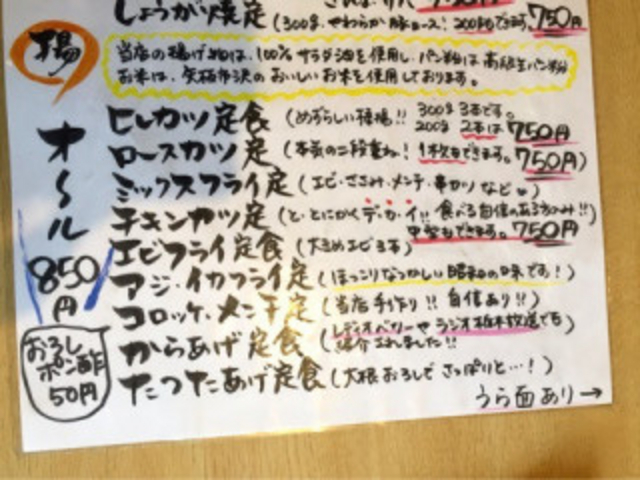 しょうが焼定 (300g、やわらか豚ロース! 200gもできます。750円
揚
当店の揚げ物は、100%サラダ油を使用し、パン粉は高級生パン粉
お米は、矢板市沢のおいしいお米を使用しております。
オール850円
ヒレカツ定食 (めずらしい 300g 3本です。200g 2本は750円
ロースカツ定 (本気の二段重ね! 1枚もできます。750円)
ミックスフライ定 (エビ・ささみ・メンチ・串カツなど
チキンカツ定 (と・とにかくデ・カ・イ!! 食べる自信のある方のみ!!)
半分もできます。750円
エビフライ定食 (大きめエビ3本)
アジ・イカフライ定 (ほっこりなつかしい昭和の味です!)
コロッケ・メンチ定 (当店手作り!! 自信あり!!)
からあげ定食 (レディオベリーやラジオ栃木放送でも紹介されました!!)
たつたあげ定食 (大根おろしでさっぱりと…!)
おろしポン酢50円
うら面あり→